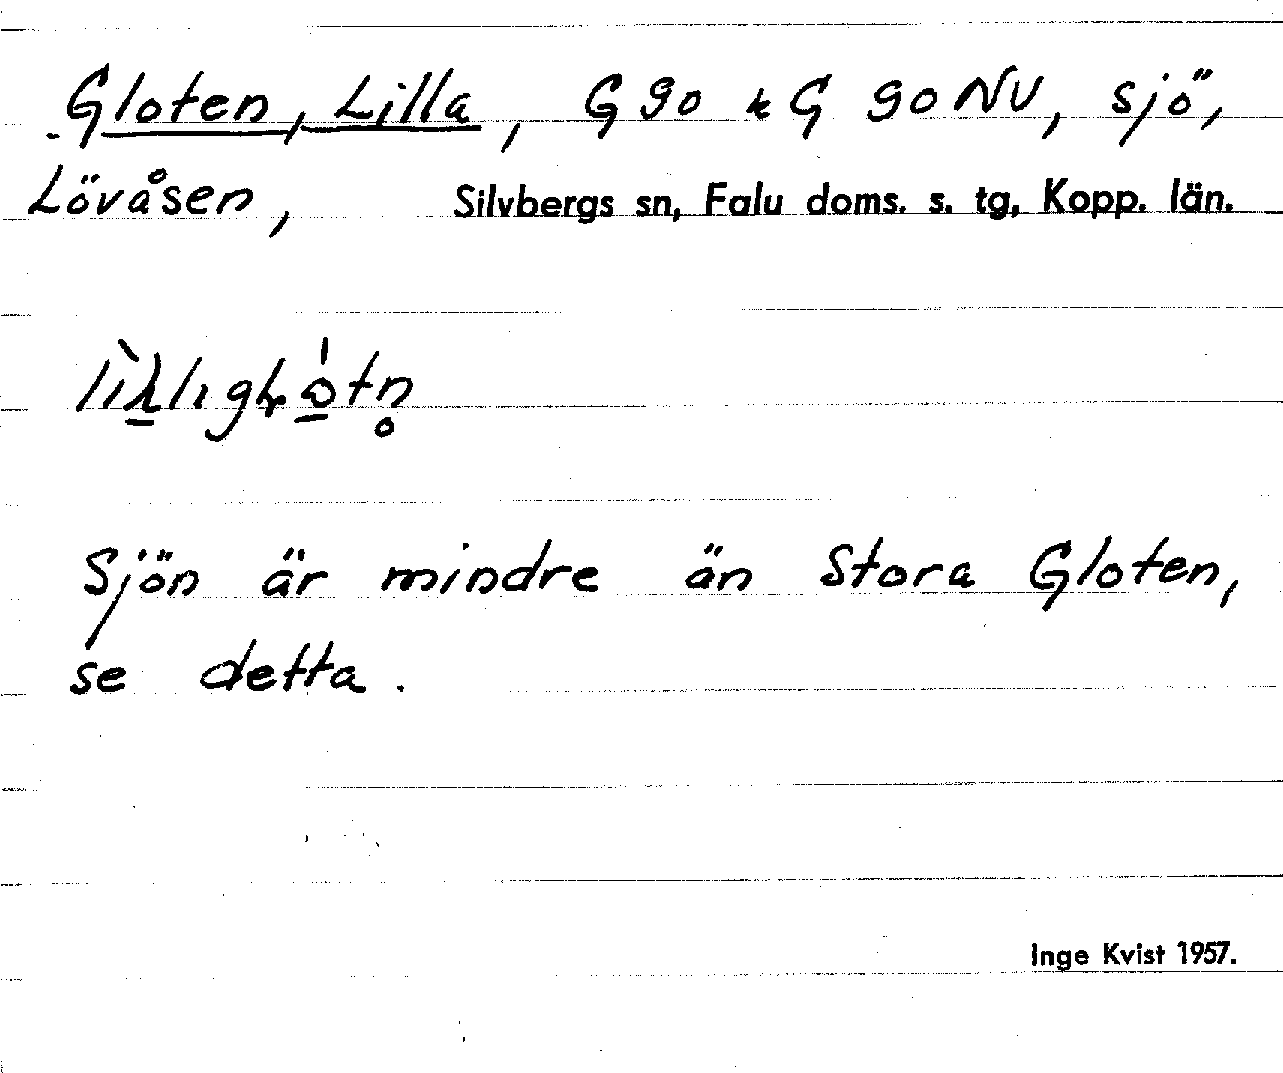 Gloten, Lilla, G 90 & G 90 NV, sjö,
Lövåsen, Silvbergs sn, Falu doms. s. tg, Kopp. län.
Sjön är mindre än Stora Gloten,
se detta.
Inge Kvist 1957.